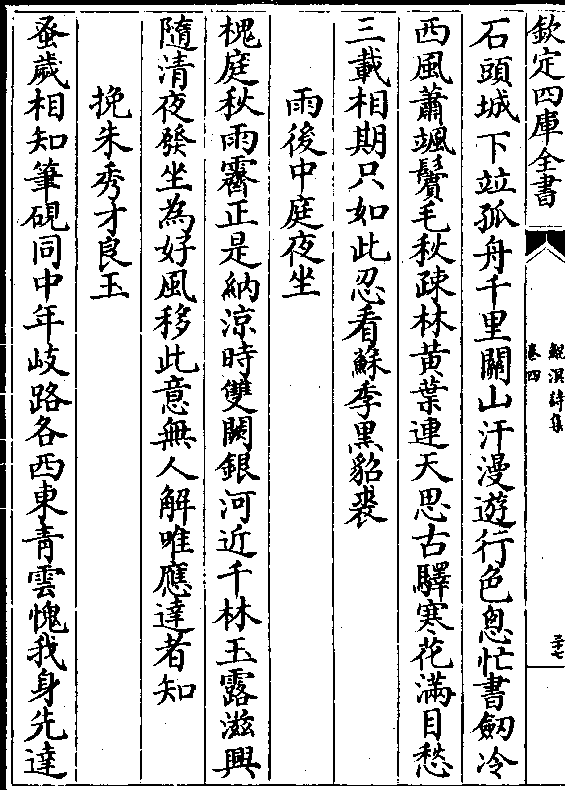 欽定四庫全書
鯤溟詩集
卷四
三十七
石頭城下竝孤舟千里關山汗漫遊行色悤忙書劒冷
西風蕭颯鬢毛秋疎林黄葉連天思古驛寒花滿目愁
三載相期只如此忍看蘇季黒貂裘
雨後中庭夜坐
槐庭秋雨霽正是納涼時雙闕銀河近千林玉露滋興
隨清夜發坐為好風移此意無人解唯應達者知
挽朱秀才良玉
蚤歲相知筆硯同中年岐路各西東青雲愧我身先達